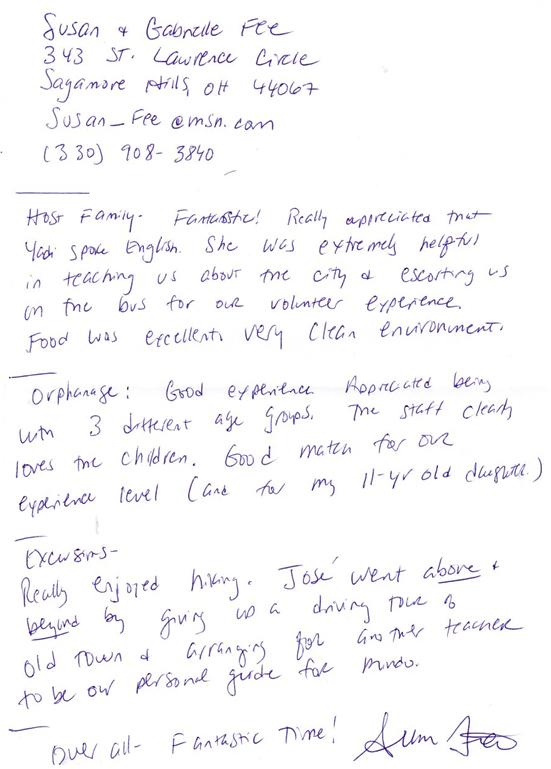 Susan & Gabrielle Fee
343 St. Lawrence Circle
Sagamore Hills, OH 44067
Susan_Fee@msn.com
(330) 908-3840
Host Family- Fantastic! Really appreciated that
Yadi spoke English. She was extremely helpful
in teaching us about the city & escorting us
on the bus for our volunteer experience.
Food was excellent, very clean environment.
Orphanage: Good experience. Appreciated being
with 3 different age groups. The staff clearly
loves the children. Good match for our
experience level (and for my 11-yr old daughter.)
Excursions-
Really enjoyed hiking. José went above &
beyond by giving us a driving tour of
Old Town & arranging for another teacher
to be our personal guide for Mindo.
Over all- Fantastic Time! Susan Fee